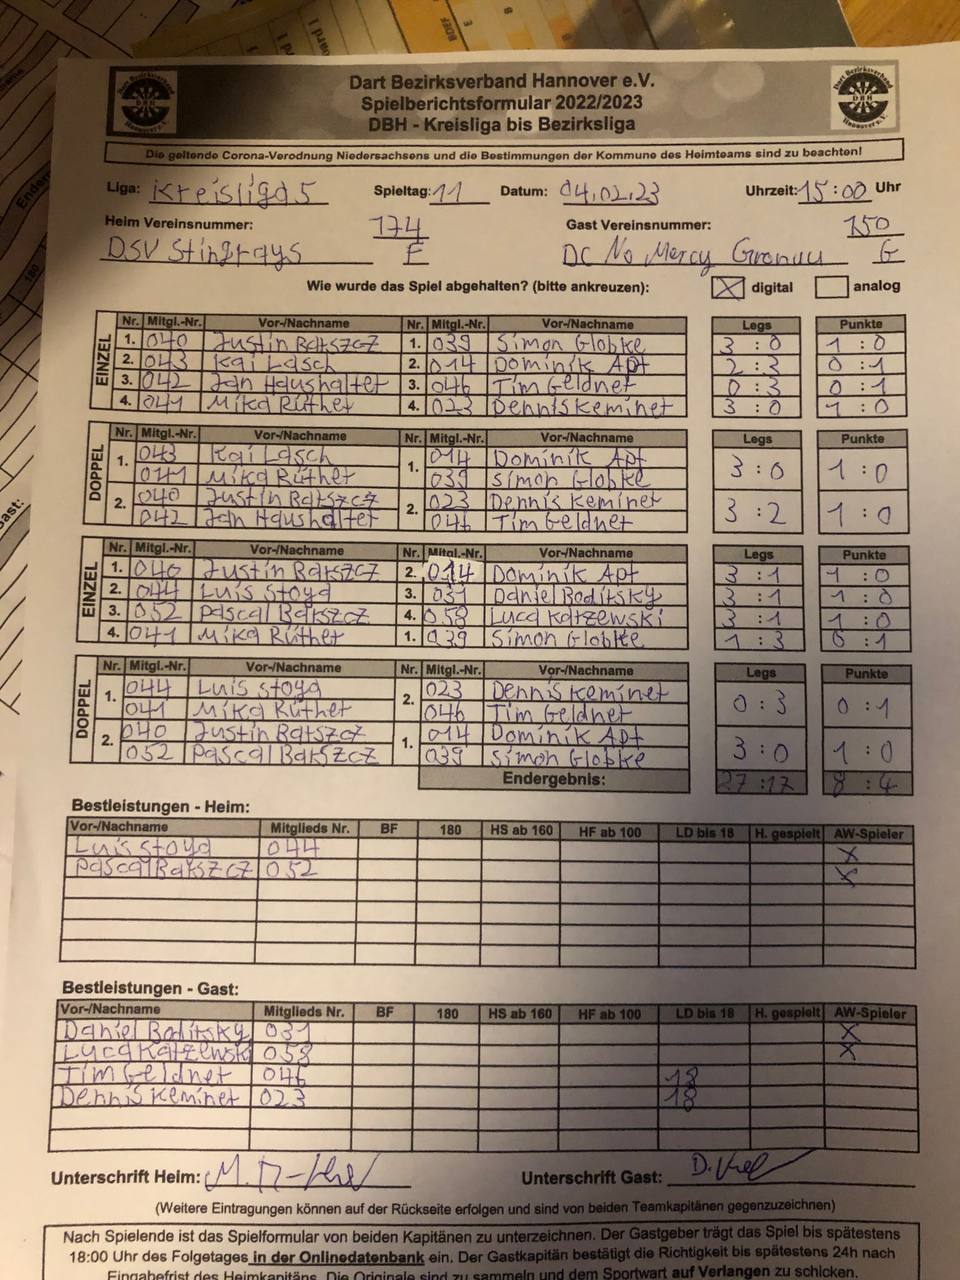 Dart Bezirksverband Hannover e.V.
Spielberichtsformular 2022/2023
DBH - Kreisliga bis Bezirksliga
Die geltende Corona-Verodnung Niedersachsens und die Bestimmungen der Kommune des Heimteams sind zu beachten!
Liga: Kreisliga 5 Spieltag: 11 Datum: 04.02.23 Uhrzeit: 15:00 Uhr
Heim Vereinsnummer: 174 Gast Vereinsnummer: 150
DSV Stingrays F DC No Mercy Gronau G
Wie wurde das Spiel abgehalten? (bitte ankreuzen): X digital analog
EINZEL
Nr. Mitgl.-Nr. Vor-/Nachname Nr. Mitgl.-Nr. Vor-/Nachname Legs Punkte
1. 040 Justin Barszcz 1. 039 Simon Globke 3 : 0 1 : 0
2. 043 Kai Lasch 2. 014 Dominik Apt 2 : 3 0 : 1
3. 042 Jan Haushalter 3. 046 Tim Geldner 0 : 3 0 : 1
4. 041 Mika Rüther 4. 023 Dennis Keminer 3 : 0 1 : 0
DOPPEL
Nr. Mitgl.-Nr. Vor-/Nachname Nr. Mitgl.-Nr. Vor-/Nachname Legs Punkte
1. 043 Kai Lasch 1. 014 Dominik Apt 3 : 0 1 : 0
041 Mika Rüther 039 Simon Globke
2. 040 Justin Barszcz 2. 023 Dennis Keminer 3 : 2 1 : 0
042 Jan Haushalter 046 Tim Geldner
EINZEL
Nr. Mitgl.-Nr. Vor-/Nachname Nr. Mitgl.-Nr. Vor-/Nachname Legs Punkte
1. 040 Justin Barszcz 2. 014 Dominik Apt 3 : 1 1 : 0
2. 044 Luis Stoya 3. 031 Daniel Boditsky 3 : 1 1 : 0
3. 052 Pascal Barszcz 4. 058 Luca Katzewski 3 : 1 1 : 0
4. 041 Mika Rüther 1. 039 Simon Globke 1 : 3 0 : 1
DOPPEL
Nr. Mitgl.-Nr. Vor-/Nachname Nr. Mitgl.-Nr. Vor-/Nachname Legs Punkte
1. 044 Luis Stoya 2. 023 Dennis Keminer 0 : 3 0 : 1
041 Mika Rüther 046 Tim Geldner
2. 040 Justin Barszcz 1. 014 Dominik Apt 3 : 0 1 : 0
052 Pascal Barszcz 039 Simon Globke
Endergebnis: 27 : 17 8 : 4
Bestleistungen - Heim:
Vor-/Nachname Mitglieds Nr. BF 180 HS ab 160 HF ab 100 LD bis 18 H. gespielt AW-Spieler
Luis Stoya 044 X
Pascal Barszcz 052 X
Bestleistungen - Gast:
Vor-/Nachname Mitglieds Nr. BF 180 HS ab 160 HF ab 100 LD bis 18 H. gespielt AW-Spieler
Daniel Boditsky 031 X
Luca Katzewski 058 X
Tim Geldner 046 18
Dennis Keminer 023 18
Unterschrift Heim: Unterschrift Gast:
(Weitere Eintragungen können auf der Rückseite erfolgen und sind von beiden Teamkapitänen gegenzuzeichnen)
Nach Spielende ist das Spielformular von beiden Kapitänen zu unterzeichnen. Der Gastgeber trägt das Spiel bis spätestens
18:00 Uhr des Folgetages in der Onlinedatenbank ein. Der Gastkapitän bestätigt die Richtigkeit bis spätestens 24h nach
Eingabefrist des Heimkapitäns. Die Originale sind zu sammeln und dem Sportwart auf Verlangen zu schicken.